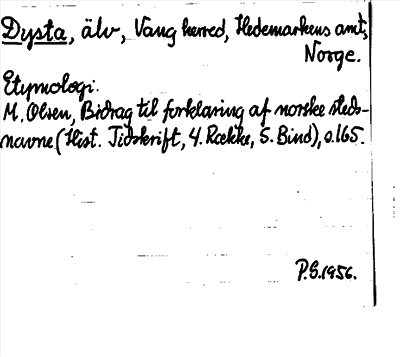 Dysta, älv, Vang herred, Hedemarkens amt,
Norge.
Etymologi:
M. Olsen, Bidrag til forklaring af norske steds-
navne (Hist. Tidskrift, 4. Række, 5. Bind), s. 165.
P.G. 1956.